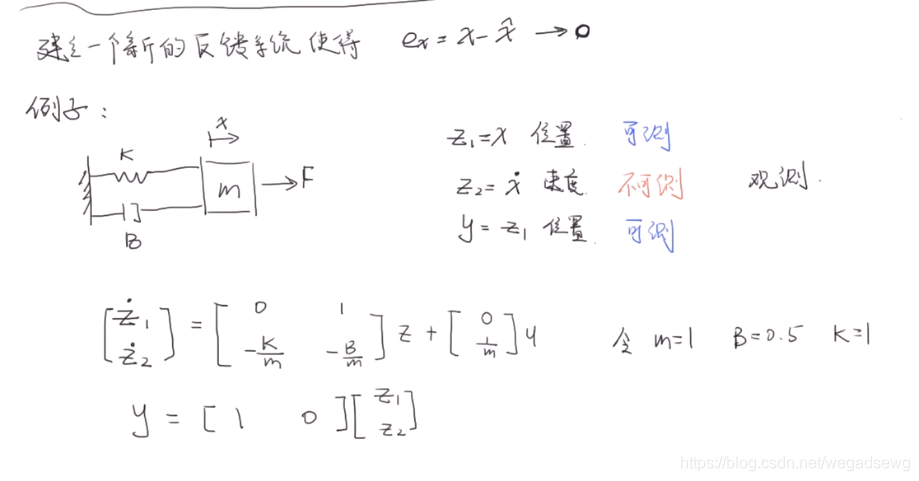 建立一个新的反馈系统 使得 eₓ = x - x̂ → 0
例子：
x
K
m
F
B
z₁ = x 位置 可测
z₂ = ẋ 速度 不可测 观测.
y = z₁ 位置 可测
[ż₁ ż₂] = [0 1 -K/m -B/m] z + [0 1/m] u 令 m=1 B=0.5 K=1
y = [1 0][z₁ z₂]
https://blog.csdn.net/wegadsewg